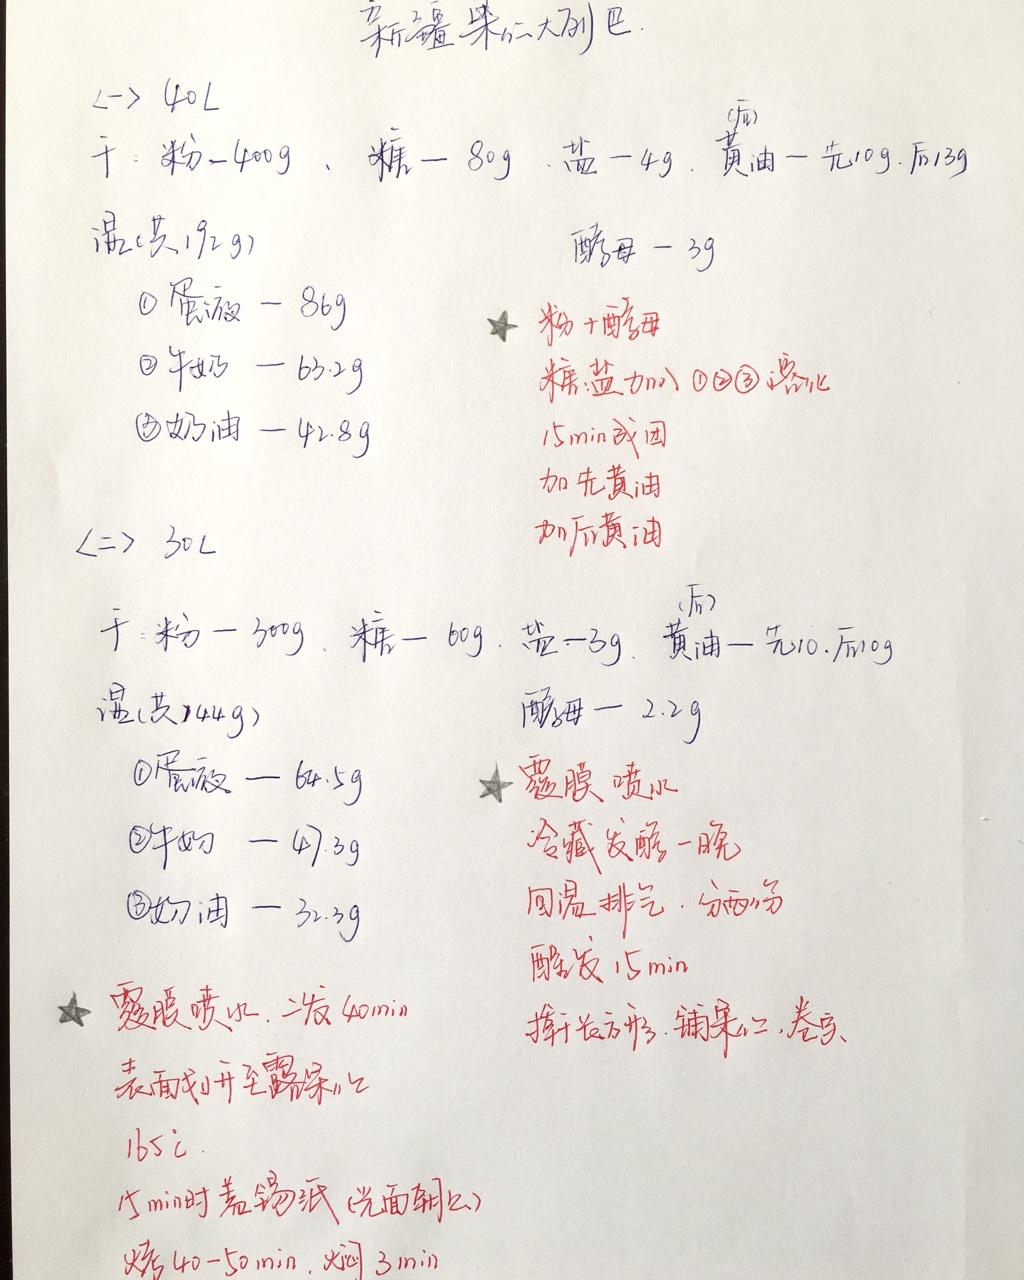 新疆果仁大列巴.
<一> 40L
(后)
干: 粉—400g、糖—80g、盐—4g、黄油—先10g.后13g
湿(共192g)
酵母—3g
①蛋液—86g
②牛奶—63.2g
③奶油—42.8g
★ 粉+酵母
糖盐加入①②③溶化
15min成团
加先黄油
加后黄油
<二> 30L
(后)
干: 粉—300g、糖—60g、盐—3g、黄油—先10.后10g
湿(共144g)
酵母—2.2g
①蛋液—64.5g
②牛奶—47.3g
③奶油—32.3g
★ 覆膜喷水
冷藏发酵一晚
回温排气.分两份
醒发15min
擀长方形.铺果仁.卷实
★ 覆膜喷水.二发40min
表面划开至露果仁
165℃.
15min时盖锡纸(光面朝上)
烤40-50min.焖3min